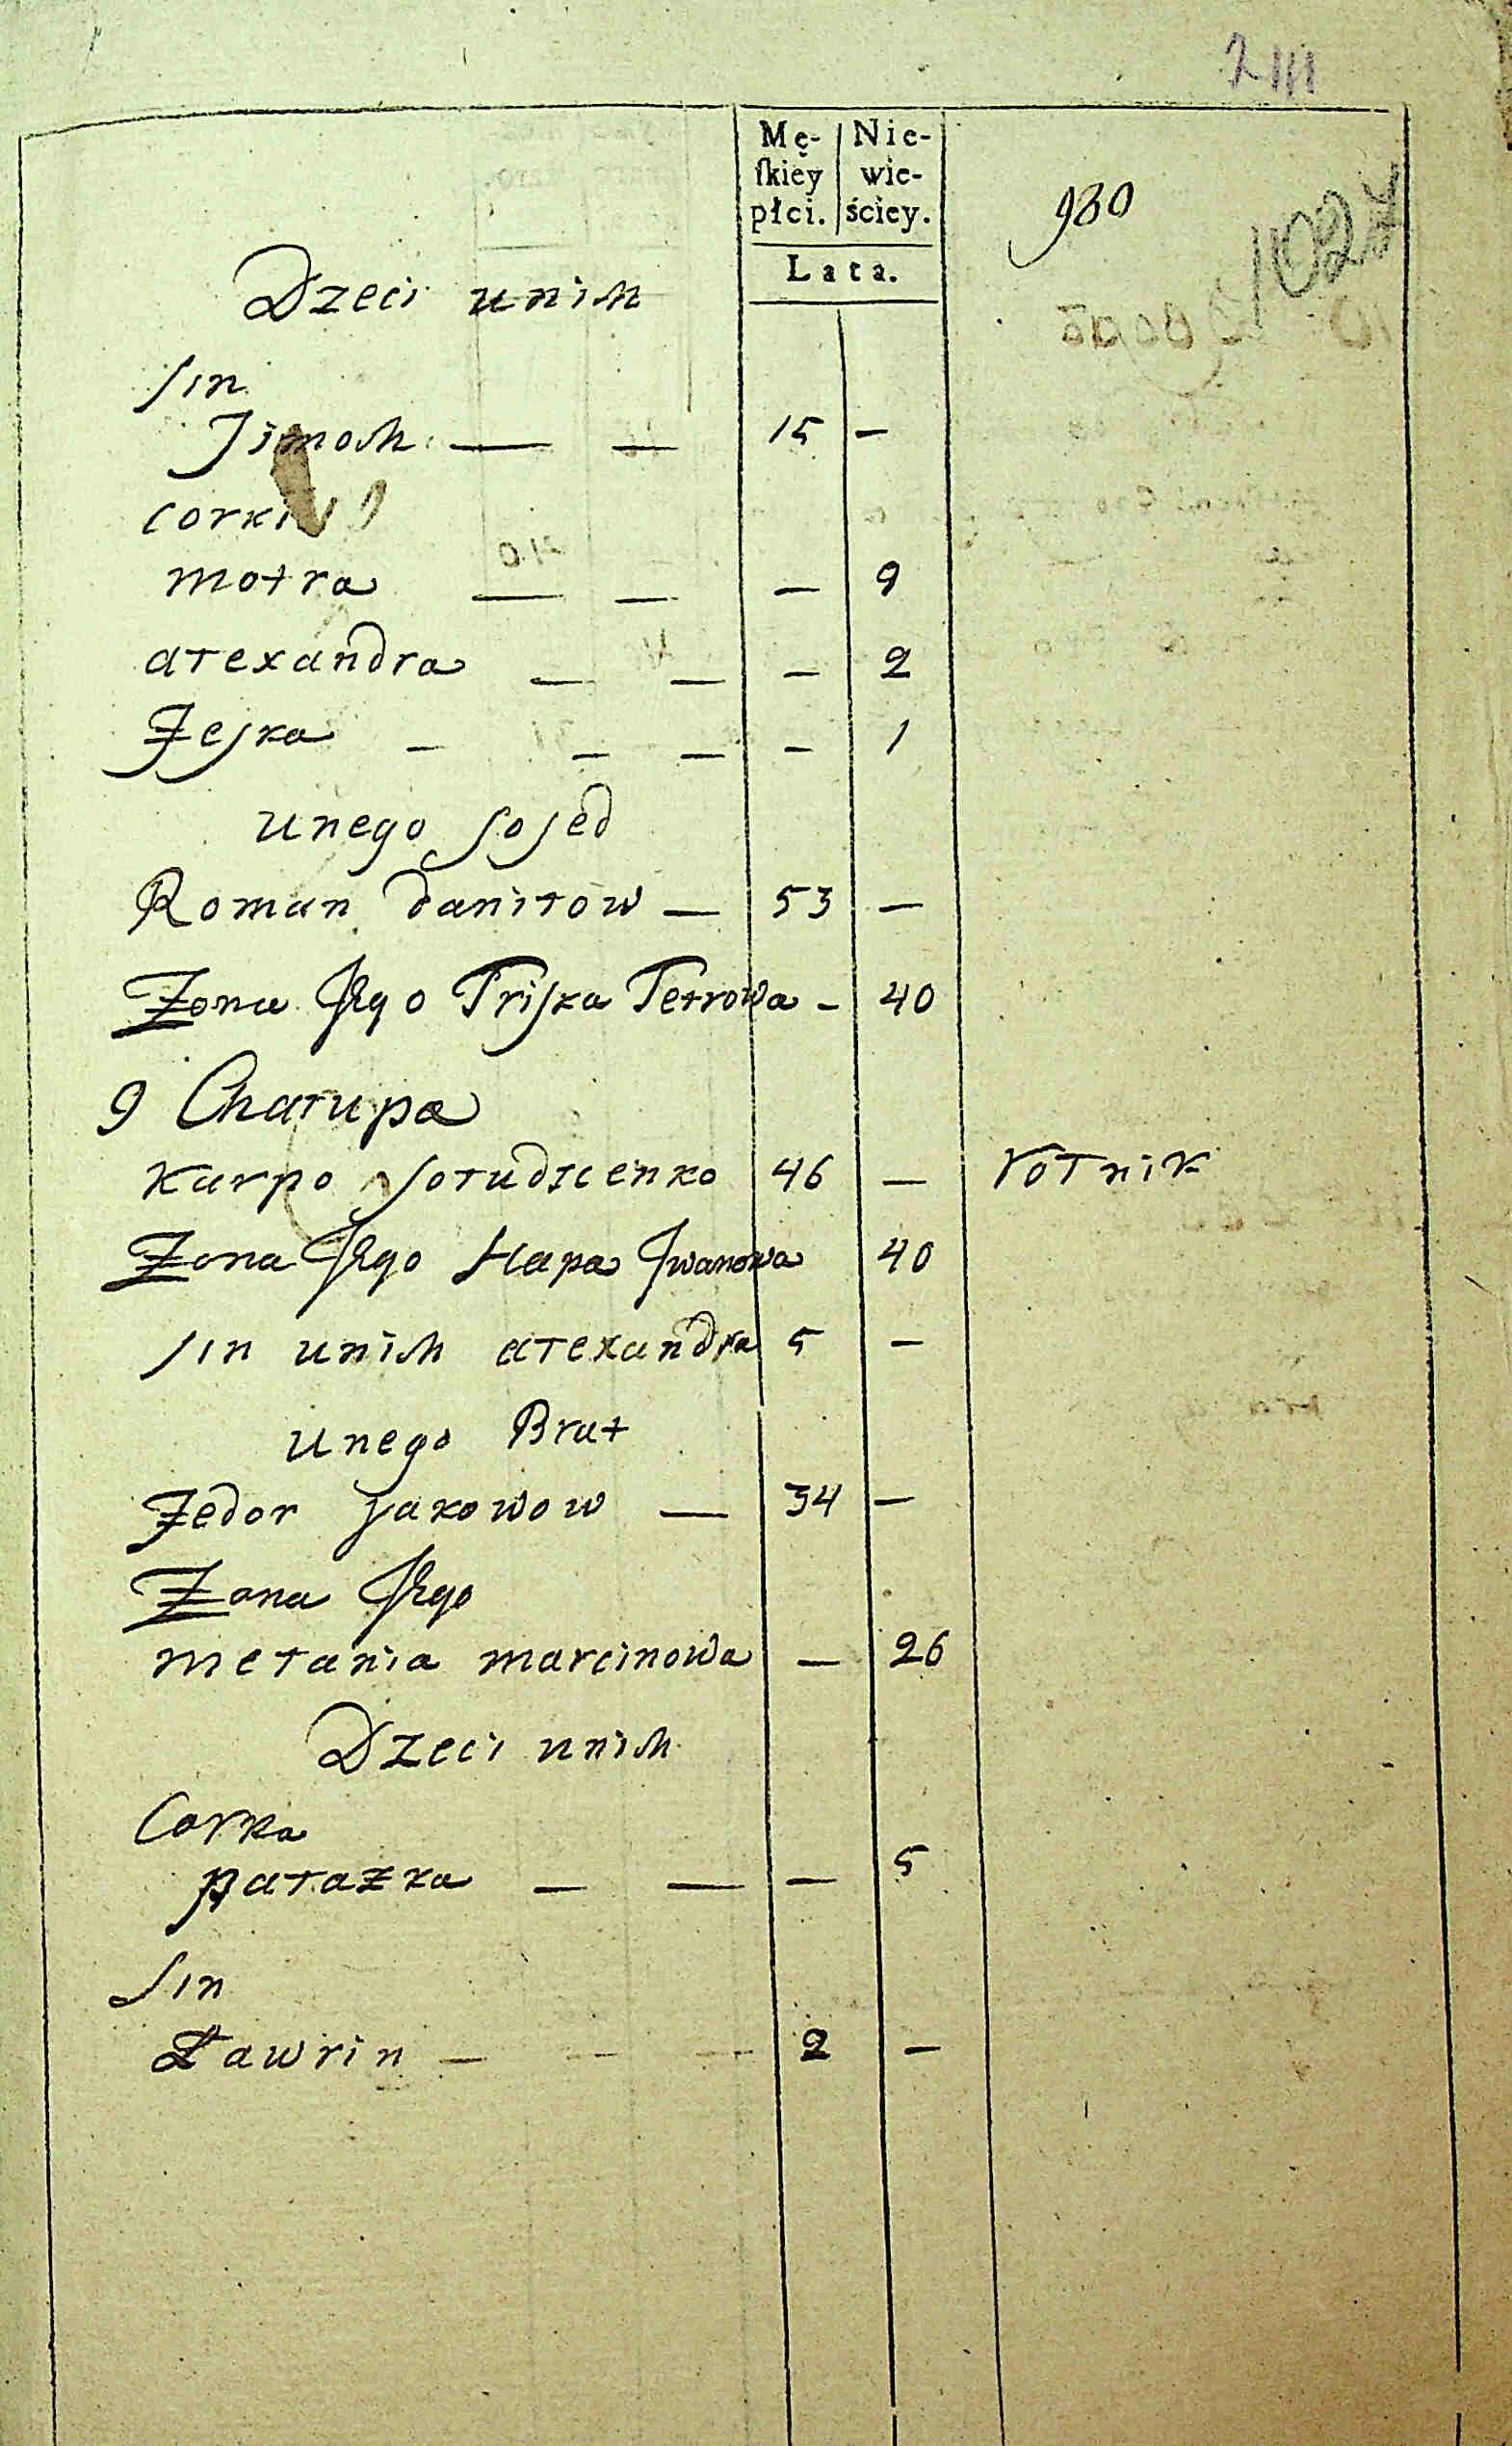 Mę- Nie-
ſkiéy wie-
płci. ściey.
Lata.
980
1027
Dzeci unich
sin
Jimoch — — 15 —
corki
motra — — — 9
alexandra — — — 2
Fejka — — — — 1
unego sosed
Roman danilow — 53 —
Żona Jego Priska Petrowa - 40
9 Chałupa
Karpo Soludscenko 46 — rolnik
Żona Jego Hapa Jwanowa 40
sin unich alexandra 5 —
unego Brat
Fedor Jakowow — 34 —
Żona Jego
melania marcinowa — 26
Dzeci unich
Corka
palażka — — — 5
Sin
Ławrin — — — 2 —